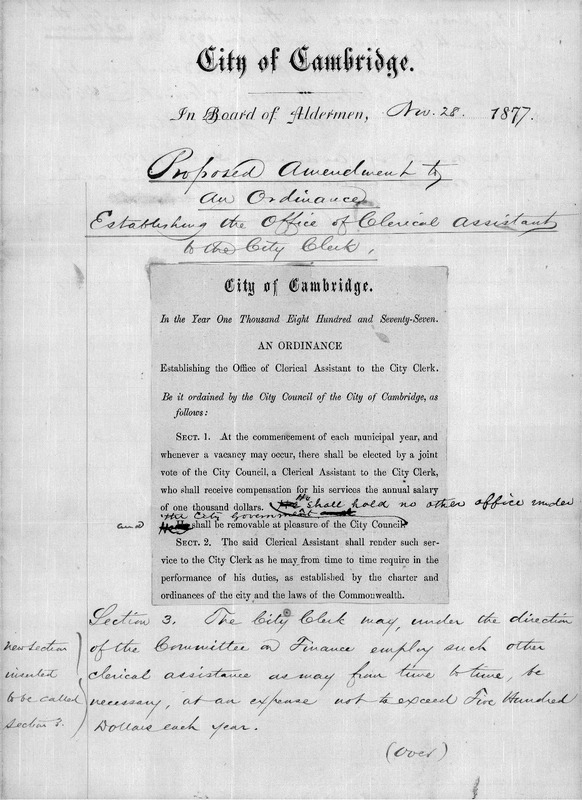 City of Cambridge.
In Board of Aldermen, Nov. 28. 1877.
Proposed Amendment to
An Ordinance
Establishing the Office of Clerical Assistant
to the City Clerk,
City of Cambridge.
In the Year One Thousand Eight Hundred and Seventy-Seven.
AN ORDINANCE
Establishing the Office of Clerical Assistant to the City Clerk.
Be it ordained by the City Council of the City of Cambridge, as
follows:
SECT. 1. At the commencement of each municipal year, and
whenever a vacancy may occur, there shall be elected by a joint
vote of the City Council, a Clerical Assistant to the City Clerk,
who shall receive compensation for his services the annual salary
of one thousand dollars. He shall hold no other office under
the City Government
and shall be removable at pleasure of the City Council.
SECT. 2. The said Clerical Assistant shall render such ser-
vice to the City Clerk as he may from time to time require in the
performance of his duties, as established by the charter and
ordinances of the city and the laws of the Commonwealth.
Section 3. The City Clerk may, under the direction
of the Committee on Finance employ such other
clerical assistance as may from time to time, be
necessary, at an expense not to exceed Five Hundred
Dollars each year.
new section
inserted
to be called
section 3.
(over)